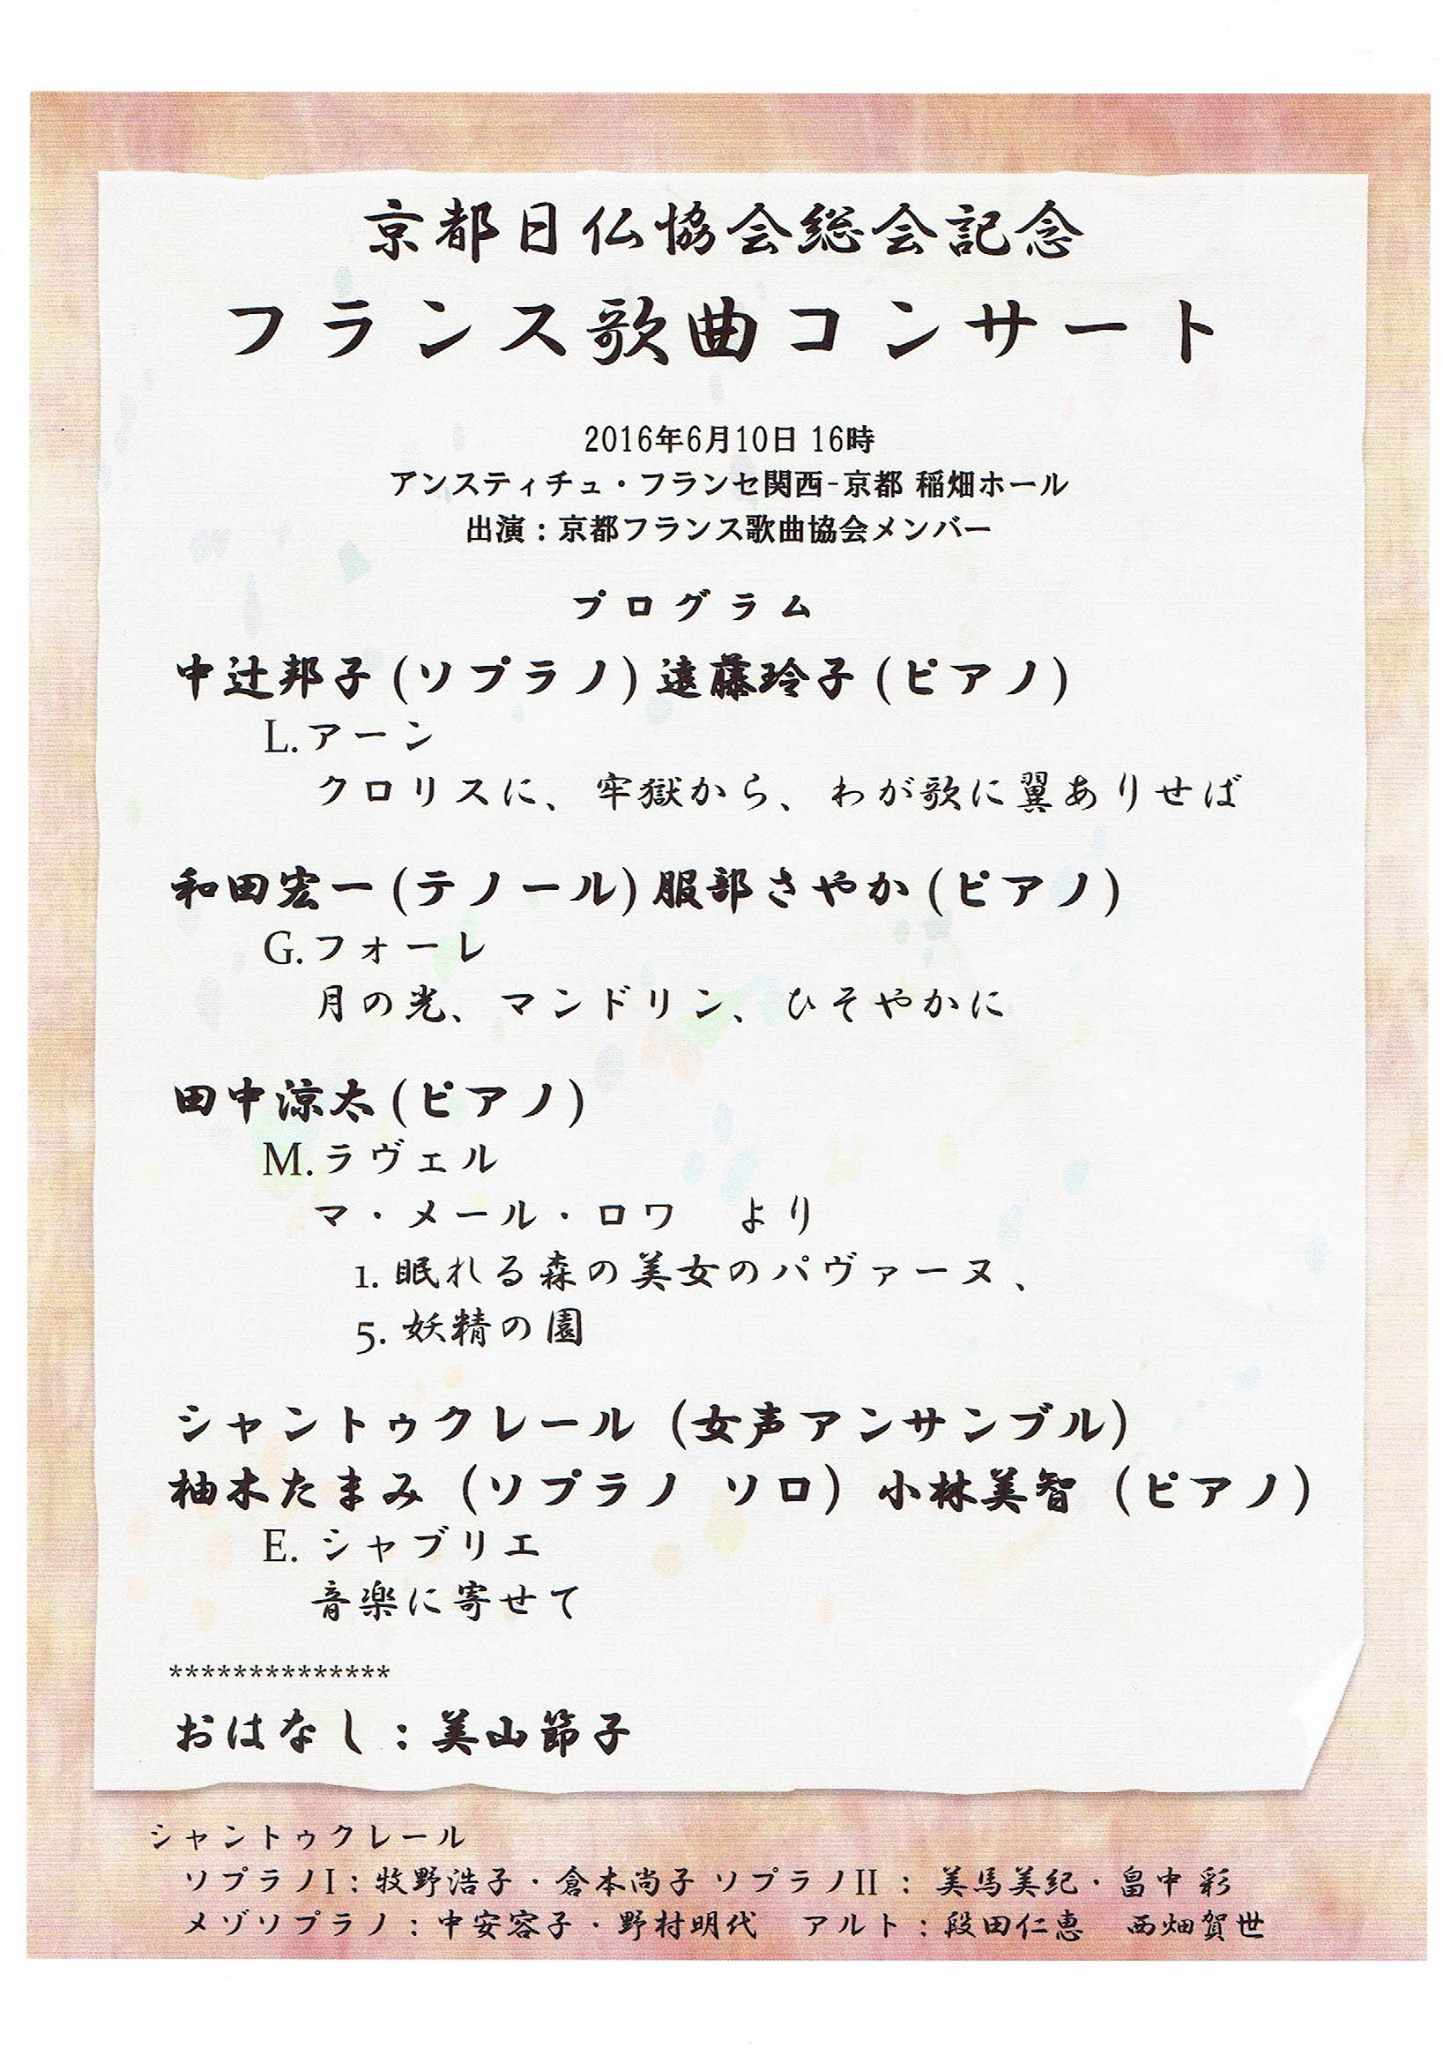 京都日仏協会総会記念
フランス歌曲コンサート
2016年6月10日 16時
アンスティチュ・フランセ関西-京都 稲畑ホール
出演：京都フランス歌曲協会メンバー
プログラム
中辻邦子(ソプラノ)遠藤玲子(ピアノ)
L.アーン
クロリスに、牢獄から、わが歌に翼ありせば
和田宏一(テノール)服部さやか(ピアノ)
G.フォーレ
月の光、マンドリン、ひそやかに
田中涼太(ピアノ)
M.ラヴェル
マ・メール・ロワ　より
1. 眠れる森の美女のパヴァーヌ、
5. 妖精の園
シャントゥクレール（女声アンサンブル）
柚木たまみ（ソプラノ ソロ）小林美智（ピアノ）
E. シャブリエ
音楽に寄せて
**************
おはなし：美山節子
シャントゥクレール
ソプラノI：牧野浩子・倉本尚子 ソプラノII：美馬美紀・畠中 彩
メゾソプラノ：中安容子・野村明代　アルト：段田仁恵　西畑賀世